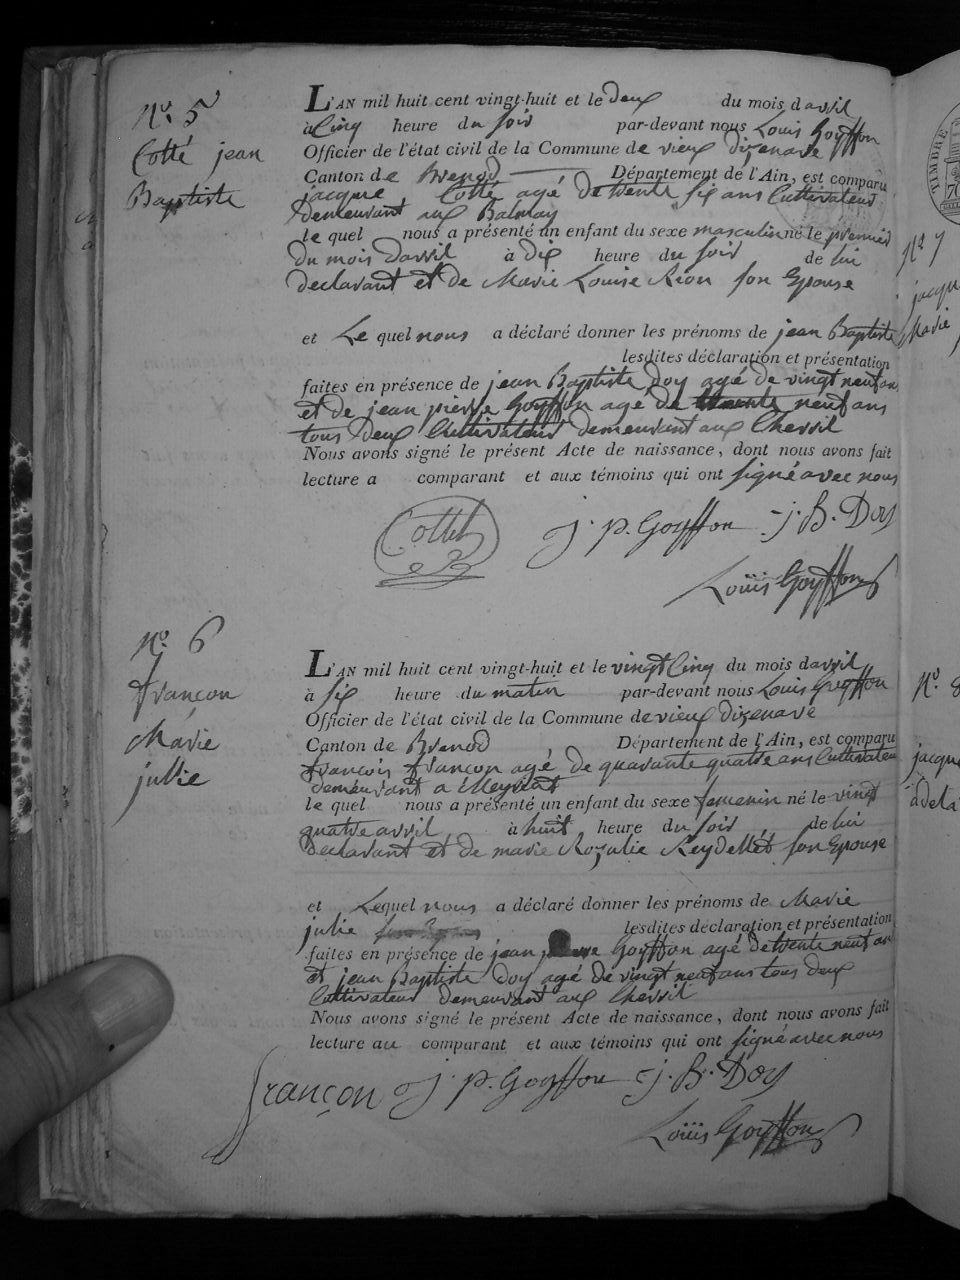 N.° 5
Cotté jean
Baptiste
L'AN mil huit cent vingt-huit et le deux du mois d'avril
à Cinq heure du soir par-devant nous Louis Goyffon
Officier de l'état civil de la Commune de vieux dizenave
Canton de Brenod Département de l'Ain, est comparu
jacque Cotté agé de trente six ans Cultivateur
demeurant aux Balmay
le quel nous a présenté un enfant du sexe masculin né le premier
du mois d'avril à dix heure du soir de lui
declarant et de Marie Louise Rion son Epouse
et Le quel nous a déclaré donner les prénoms de jean Baptiste
lesdites déclaration et présentation
faites en présence de jean Baptiste Doy agé de vingt neuf an
et de jean pierre Goyffon agé de trente neuf ans
tous deux Cultivateur demeurant aux Chevril
Nous avons signé le présent Acte de naissance, dont nous avons fait
lecture a comparant et aux témoins qui ont signé avec nous
Cottet
j. p. Goyffon j. B. Doy
Louis Goyffon
N.° 6
françon
Marie
jullie
L'AN mil huit cent vingt-huit et le vingt Cinq du mois d'avril
à six heure du matin par-devant nous Louis Goyffon
Officier de l'état civil de la Commune de vieux dizenave
Canton de Brenod Département de l'Ain, est comparu
françois françon agé de quarante quatre ans Cultivateur
demeurant a Meyriat
le quel nous a présenté un enfant du sexe femenin né le vingt
quatre avril à huit heure du soir de lui
Declarant et de marie Rozalie Reydellet son Epouse
et Lequel nous a déclaré donner les prénoms de Marie
julie lesdites déclaration et présentation
faites en présence de jean pierre Goyffon agé de trente neuf an
et jean Baptiste Doy agé de vingt neuf ans tous deux
Cultivateur demeurant aux Chevril
Nous avons signé le présent Acte de naissance, dont nous avons fait
lecture au comparant et aux témoins qui ont signé avec nous
françon j. p. Goyffon j. B. Doy
Louis Goyffon
TIMBRE
N.° 7
jacqu
Marie
N.° 8
jacque
adela